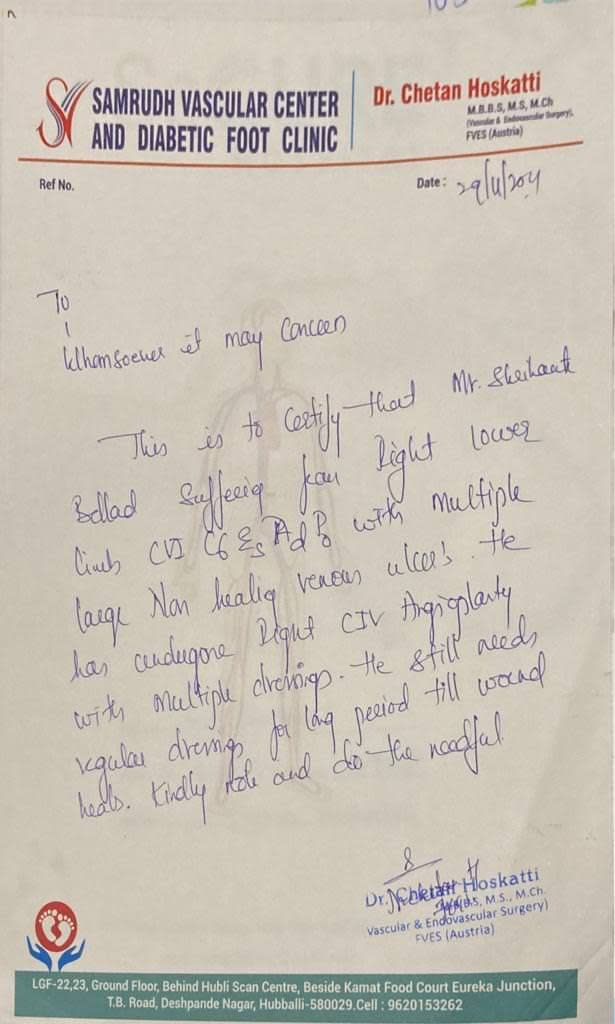 SAMRUDH VASCULAR CENTER
AND DIABETIC FOOT CLINIC
Dr. Chetan Hoskatti
M.B.B.S, M.S, M.Ch
(Vascular & Endovascular Surgery),
FVES (Austria)
Ref No.
Date:
To
Whomsoever it may Concern
This is to Certify that Mr.
Bellad Suffering from Right lower
limb CVI C6 Es Ad with Multiple
large Non healing venous ulcers. He
has undergone Right CIV Angioplasty
with Multiple dressings. He still needs
regular dressings for long period till wound
heals. Kindly note and do the needful.
Dr. Chetan Hoskatti
M.B.B.S, M.S., M.Ch.
Vascular & Endovascular Surgery)
FVES (Austria)
LGF-22,23, Ground Floor, Behind Hubli Scan Centre, Beside Kamat Food Court Eureka Junction,
T.B. Road, Deshpande Nagar, Hubballi-580029.Cell : 9620153262